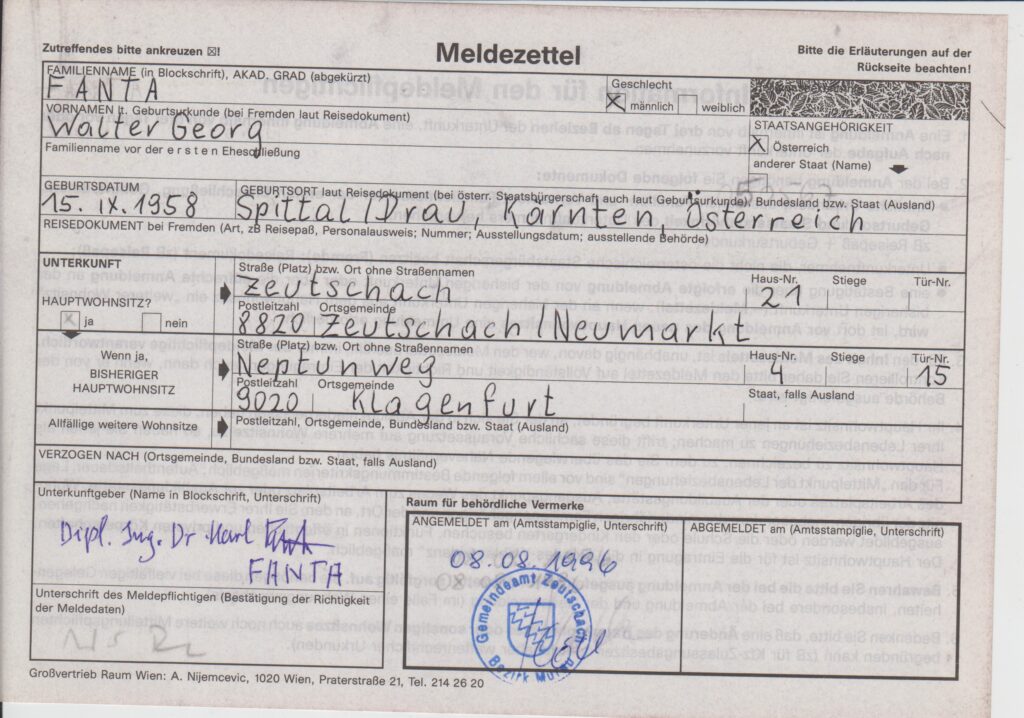 Zutreffendes bitte ankreuzen ☒!
Meldezettel
Bitte die Erläuterungen auf der
Rückseite beachten!
FAMILIENNAME (in Blockschrift), AKAD. GRAD (abgekürzt)
FANTA
Geschlecht
☒ männlich ☐ weiblich
VORNAMEN lt. Geburtsurkunde (bei Fremden laut Reisedokument)
Walter Georg
STAATSANGEHÖRIGKEIT
☒ Österreich
anderer Staat (Name)
Familienname vor der ersten Eheschließung
GEBURTSDATUM
15. IX. 1958
GEBURTSORT laut Reisedokument (bei österr. Staatsbürgerschaft auch laut Geburtsurkunde), Bundesland bzw. Staat (Ausland)
Spittal/Drau, Kärnten, Österreich
REISEDOKUMENT bei Fremden (Art, zB Reisepaß, Personalausweis; Nummer; Ausstellungsdatum; ausstellende Behörde)
UNTERKUNFT
HAUPTWOHNSITZ?
☒ ja ☐ nein
Straße (Platz) bzw. Ort ohne Straßennamen Haus-Nr. Stiege Tür-Nr.
Zeutschach 21
Postleitzahl Ortsgemeinde
8820 Zeutschach/Neumarkt
Wenn ja,
BISHERIGER
HAUPTWOHNSITZ
Straße (Platz) bzw. Ort ohne Straßennamen Haus-Nr. Stiege Tür-Nr.
Neptunweg 4 15
Postleitzahl Ortsgemeinde Staat, falls Ausland
9020 Klagenfurt
Allfällige weitere Wohnsitze
Postleitzahl, Ortsgemeinde, Bundesland bzw. Staat (Ausland)
VERZOGEN NACH (Ortsgemeinde, Bundesland bzw. Staat, falls Ausland)
Unterkunftgeber (Name in Blockschrift, Unterschrift)
Dipl. Ing. Dr Karl
FANTA
Unterschrift des Meldepflichtigen (Bestätigung der Richtigkeit
der Meldedaten)
Raum für behördliche Vermerke
ANGEMELDET am (Amtsstampiglie, Unterschrift)
08.08.1996
Gemeindeamt Zeutschach
Bezirk Murau
ABGEMELDET am (Amtsstampiglie, Unterschrift)
Großvertrieb Raum Wien: A. Nijemcevic, 1020 Wien, Praterstraße 21, Tel. 214 26 20